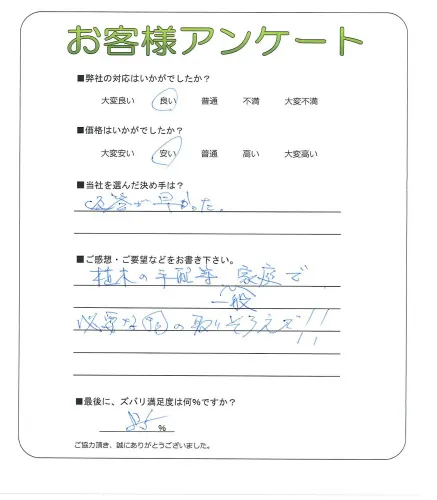 お客様アンケート
■弊社の対応はいかがでしたか？
大変良い 良い 普通 不満 大変不満
■価格はいかがでしたか？
大変安い 安い 普通 高い 大変高い
■当社を選んだ決め手は？
応答が早かった。
■ご感想・ご要望などをお書き下さい。
植木の手配等 家庭で
一般
必要な の取りそろえズ!!
■最後に、ズバリ満足度は何％ですか？
85 ％
ご協力頂き、誠にありがとうございました。